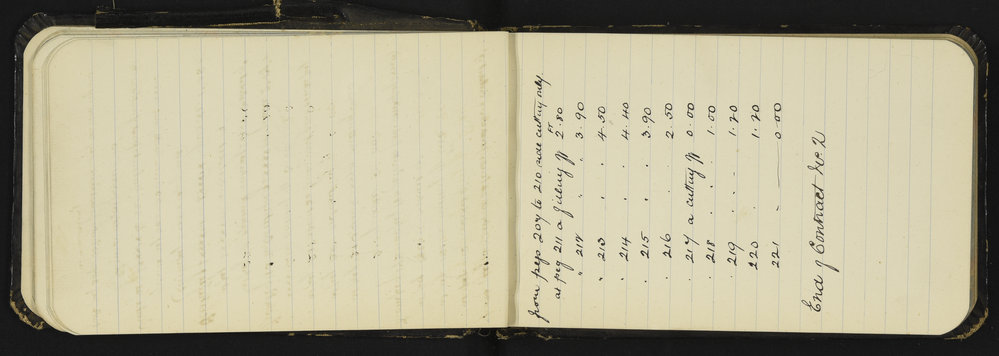 from pegs 207 to 210 side cutting only
at peg 211 a filling of 2.80 Ft
" 212 " " 3.90
" 213 . . 4.50
. 214 . . 4.40
. 215 . . 3.90
. 216 . . 2.50
. 217 a cutting of 0.00
. 218 . . 1.00
219 . - 1.20
220 1.20
221 - — 0.00
End of Contract No. 2